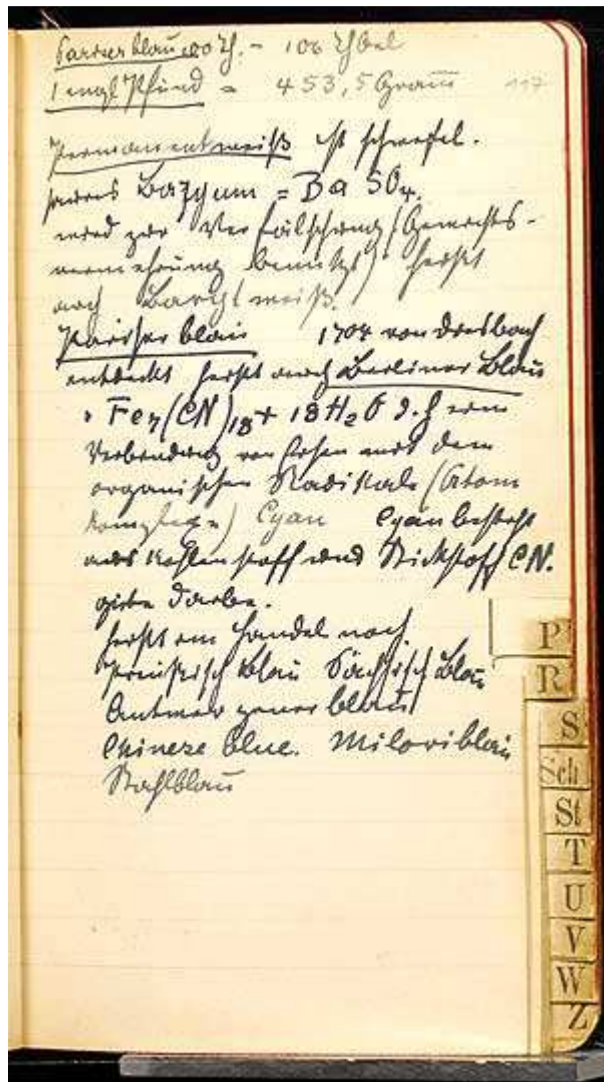 Pariserblau 100 Th. = 100 Th Oel
1 engl Pfund = 453,5 Gramm 117
Permanentweiß ist schwefel-
saures Baryum = Ba SO4.
wird zur Verfälschung (Gewichts-
vermehrung benutzt) heißt
auch Barytweiß.
Pariser blau 1704 von Diesbach
entdeckt heißt auch Berliner Blau
= Fe7(CN)18 + 18 H2O d. h eine
Verbindung von Eisen mit dem
organischen Radikale (Atom
komplexe) Cyan Cyan besteht
aus Kohlenstoff und Stickstoff CN.
gute Farbe.
heißt im Handel noch
Preußisch Blau Sächsisch Blau
Antwerpener blau
Chinese blue. Miloriblau
Stahlblau
P
R
S
Sch
St
T
U
V
W
Z